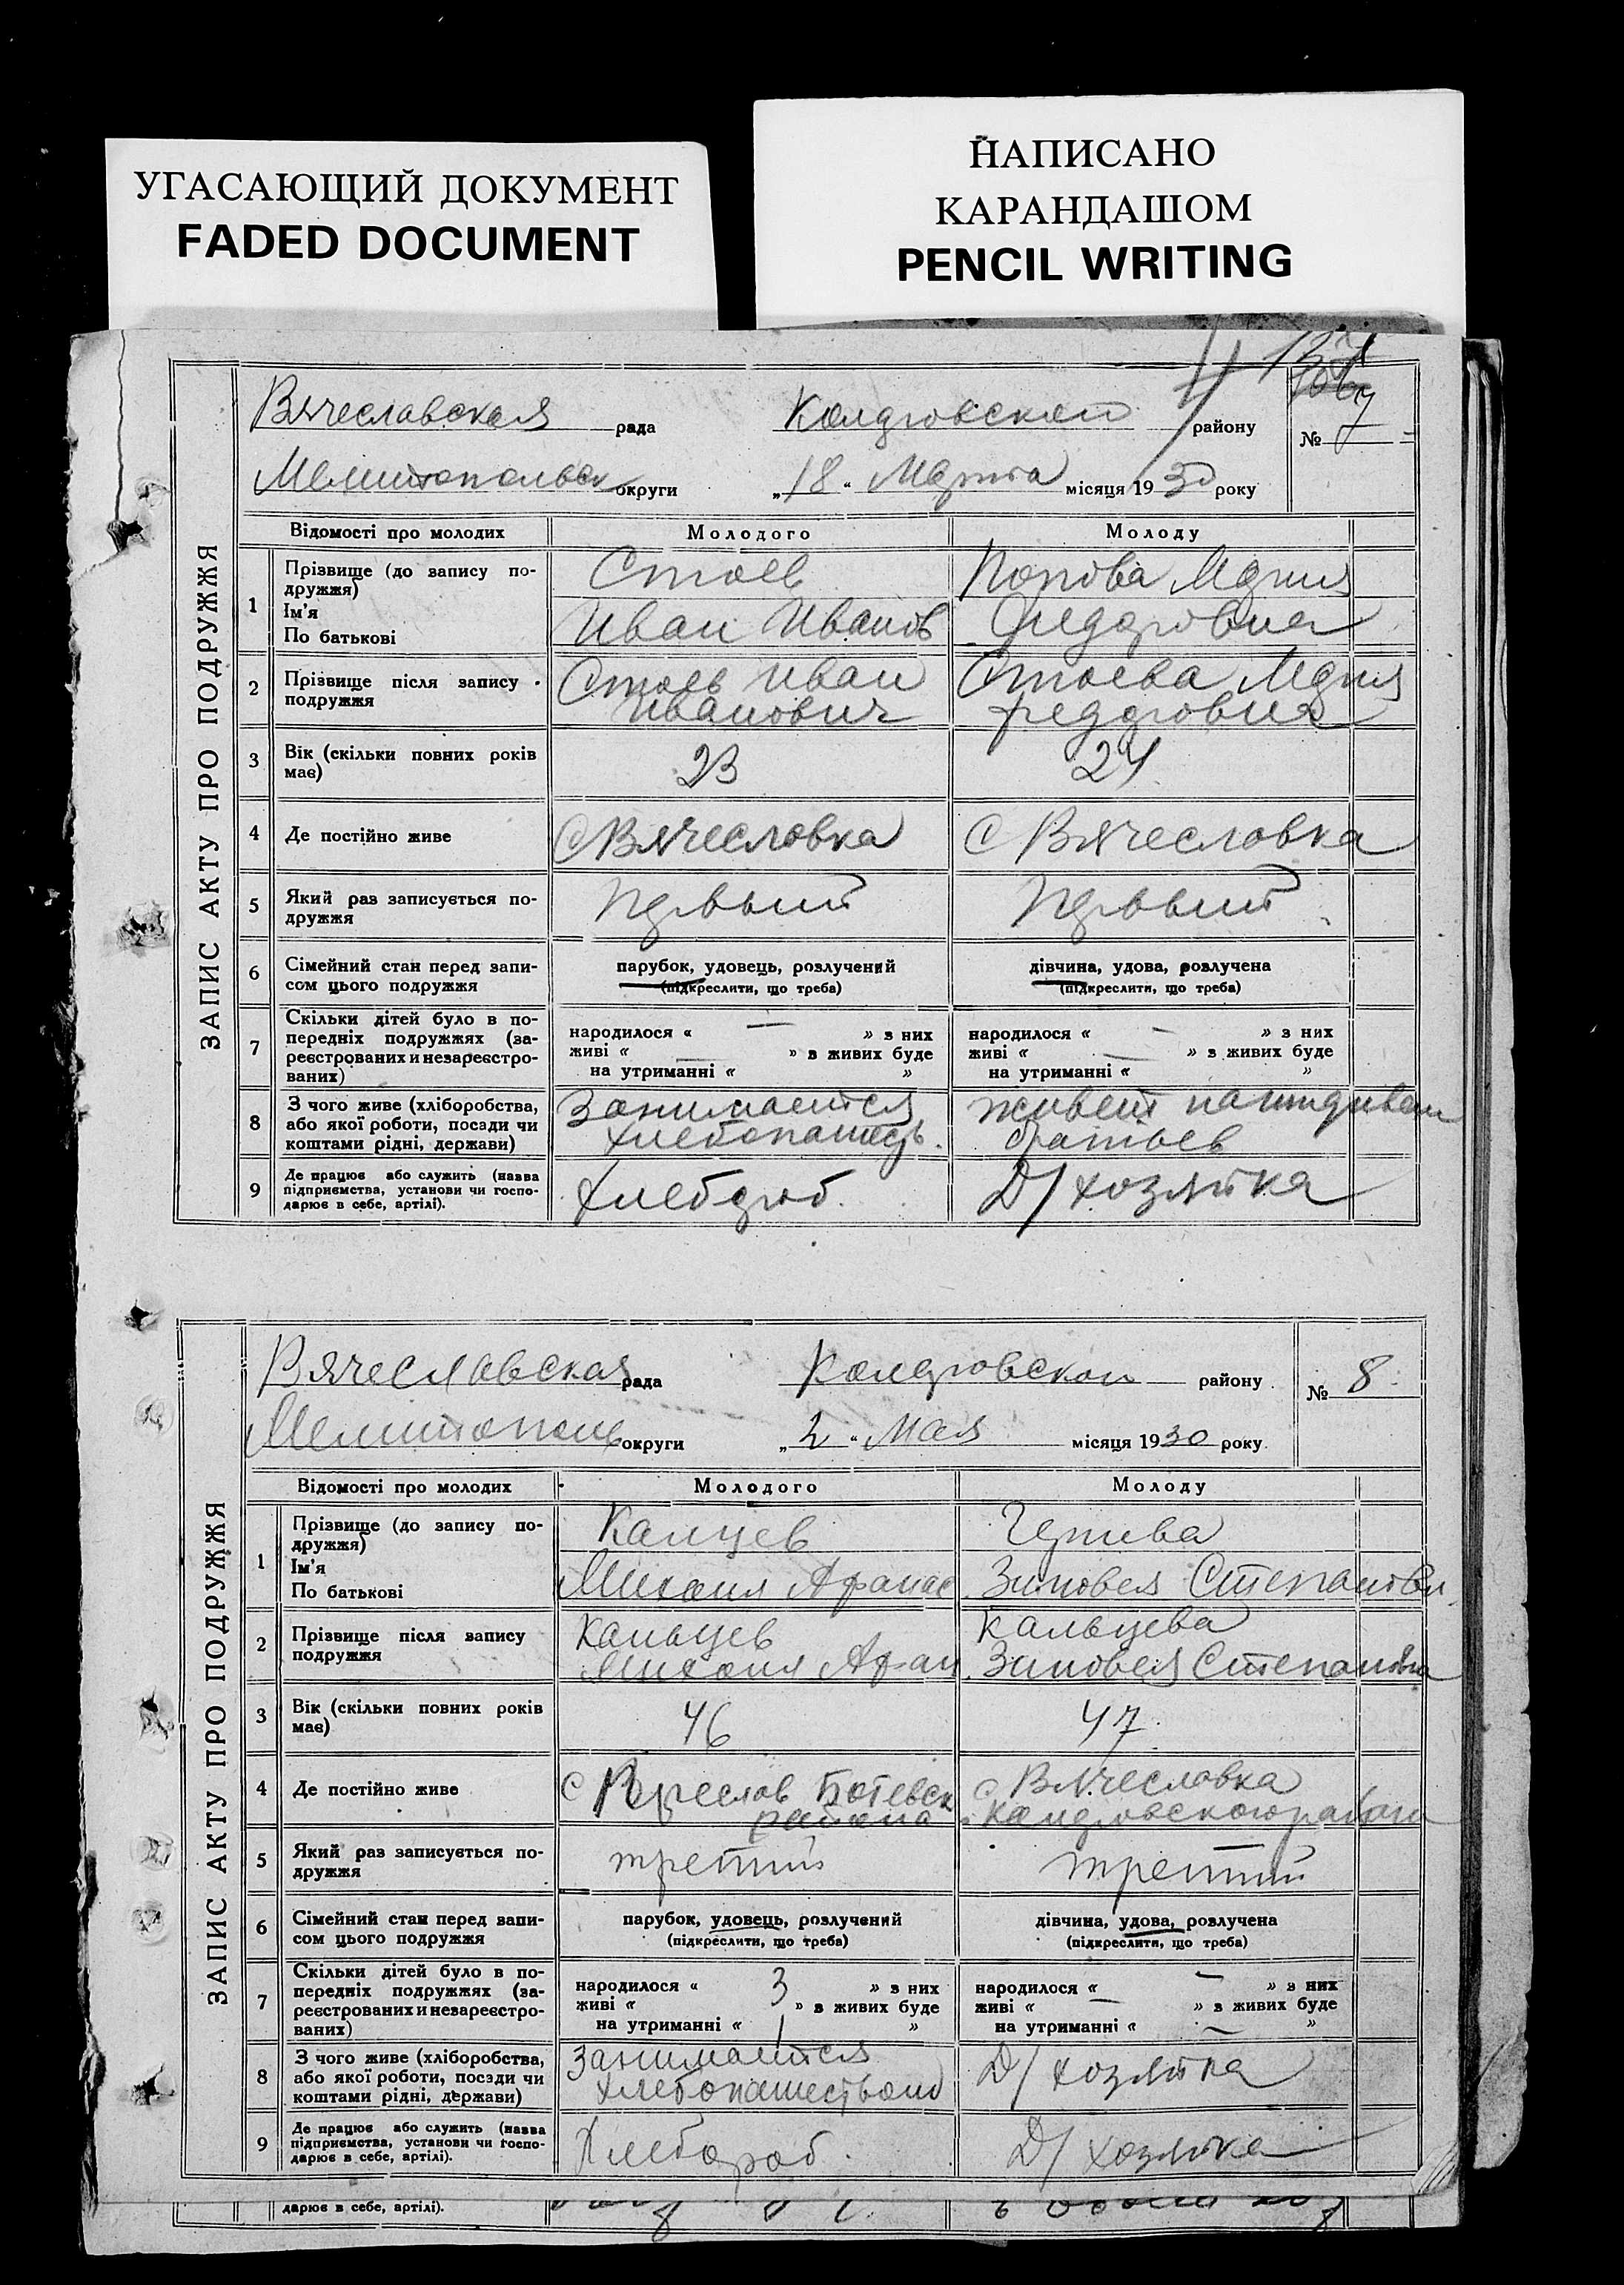 УГАСАЮЩИЙ ДОКУМЕНТ
FADED DOCUMENT
НАПИСАНО
КАРАНДАШОМ
PENCIL WRITING
ЗАПИС АКТУ ПРО ПОДРУЖЖЯ
Вячеславская рада району
№ 7
округи „18“ Марта місяця 1930 року
Відомості про молодих Молодого Молоду
1 Прізвище (до запису по-
дружжя)
Ім'я
По батькові
Стоев
Иван Иванов
Попова Мария
Федоровна
2 Прізвище після запису
подружжя
Стоев Иван
Иванович
Стоева Мария
Федоровна
3 Вік (скільки повних років
має)
23
24
4 Де постійно живе
С Вячесловка
С Вячесловка
5 Який раз записується по-
дружжя
Первый
Первый
6 Сімейний стан перед запи-
сом цього подружжя
парубок, удовець, розлучений
(підкреслити, що треба)
дівчина, удова, розлучена
(підкреслити, що треба)
7 Скільки дітей було в по-
передніх подружжях (за-
реєстрованих и незареєстро-
ваних)
народилося « — » з них
живі « — » з живих буде
на утриманні « »
народилося « — » з них
живі « — » з живих буде
на утриманні « »
8 З чого живе (хліборобства,
або якої роботи, посади чи
коштами рідні, держави)
Занимается
живет
братьев
9 Де працює або служить (назва
підприємства, установи чи госпо-
дарює в себе, артілі).
Хлебороб
Д/хозяйка
ЗАПИС АКТУ ПРО ПОДРУЖЖЯ
Вячеславская рада району
№ 8
округи „2“ Мая місяця 1930 року
Відомості про молодих Молодого Молоду
1 Прізвище (до запису по-
дружжя)
Ім'я
По батькові
Калцев
Михаил Афанас
Зиновея Степановн
2 Прізвище після запису
подружжя
Кальцев
Михаил Афан
Кальцева
Зиновея Степановна
3 Вік (скільки повних років
має)
46
47
4 Де постійно живе
С Ботевск
района
с Вячесловка
5 Який раз записується по-
дружжя
третий
третий
6 Сімейний стан перед запи-
сом цього подружжя
парубок, удовець, розлучений
(підкреслити, що треба)
дівчина, удова, розлучена
(підкреслити, що треба)
7 Скільки дітей було в по-
передніх подружжях (за-
реєстрованих и незареєстро-
ваних)
народилося « 3 » з них
живі « » з живих буде
на утриманні « 1 »
народилося « — » з них
живі « — » з живих буде
на утриманні « — »
8 З чого живе (хліборобства,
або якої роботи, посади чи
коштами рідні, держави)
Занимается
хлебопашеством
Д/хозяйка
9 Де працює або служить (назва
підприємства, установи чи госпо-
дарює в себе, артілі).
Хлебороб
Д/хозяйка
дарює в себе, артілі).